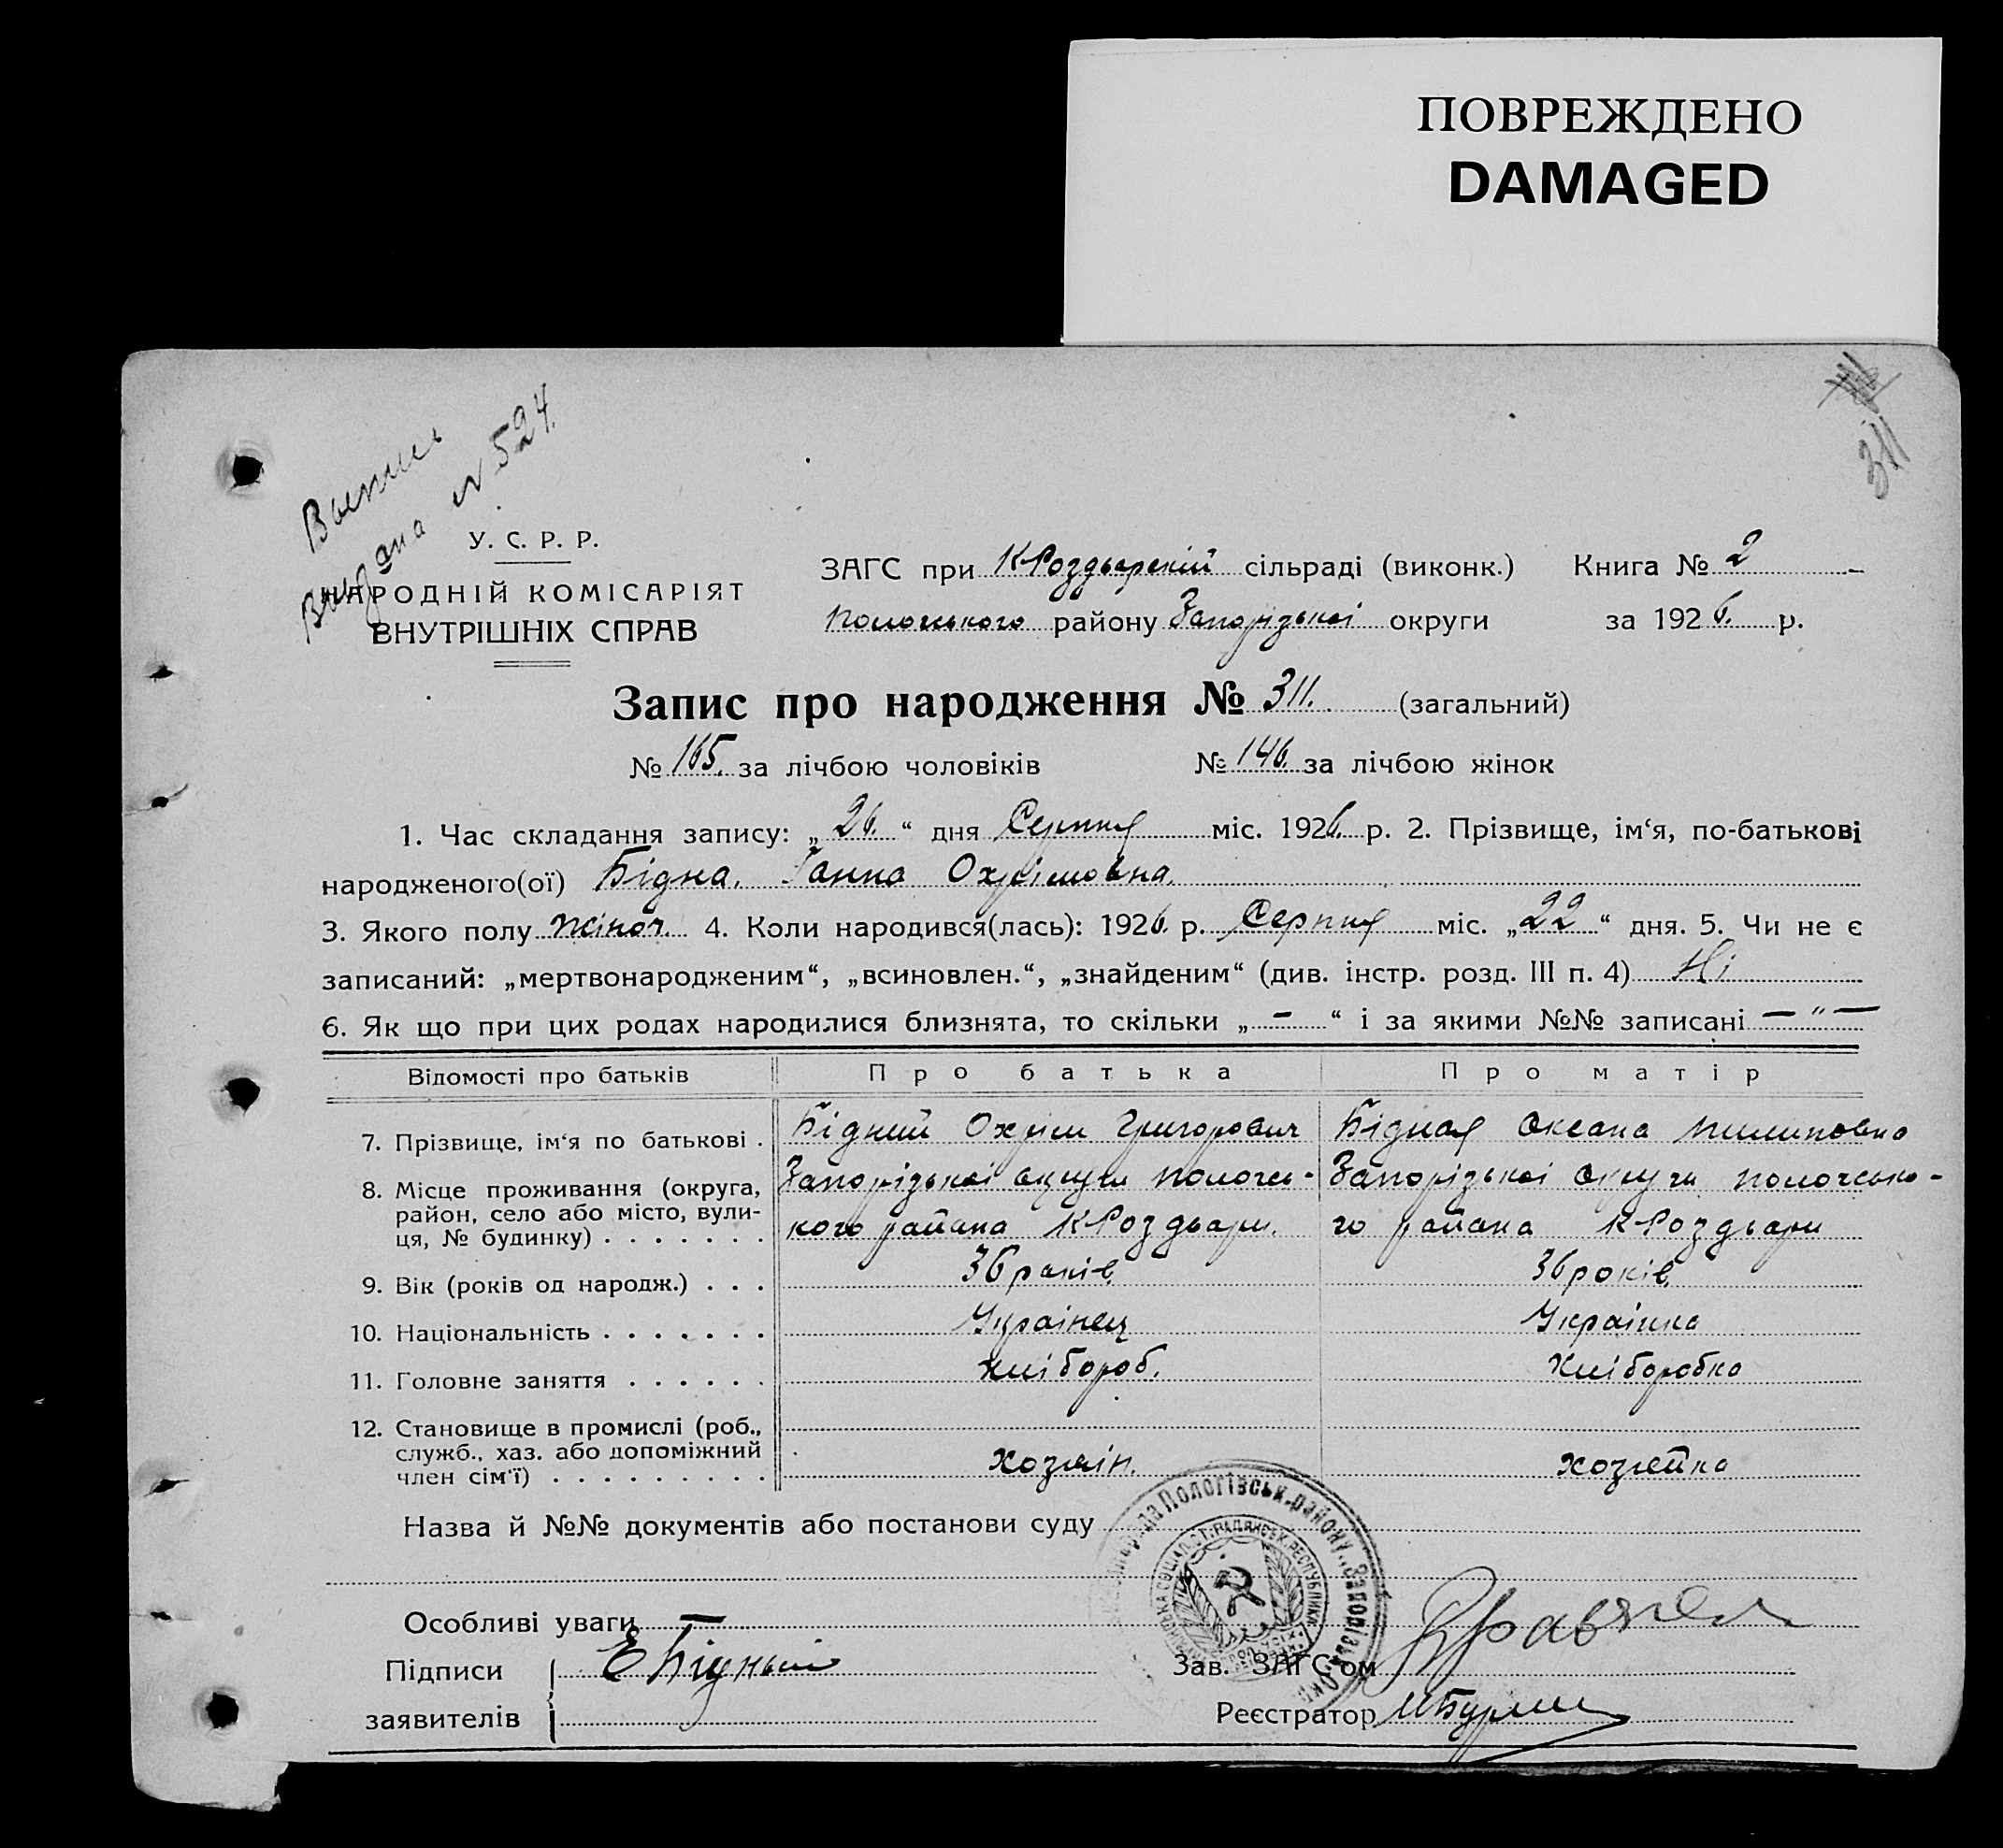 ПОВРЕЖДЕНО
DAMAGED
311
Выпись
Выдана N 524.
У. С. Р. Р.
НАРОДНІЙ КОМІСАРІЯТ
ВНУТРІШНІХ СПРАВ
ЗАГС при КРоздорській сільраді (виконк.) Книга № 2
Пологського району Запорізькоі округи за 1926. р.
Запис про народження № 311. (загальний)
№ 165. за лічбою чоловіків № 146. за лічбою жінок
1. Час складання запису: „26.“ дня Серпня міс. 1926. р. 2. Прізвище, ім‘я, по-батькові
народженого(ої) Бідна. Ганна Охрімовна.
3. Якого полу жіноч. 4. Коли народився(лась): 1926. р. Серпня міс. „22“ дня. 5. Чи не є
записаний: „мертвонародженим“, „всиновлен.“, „знайденим“ (див. інстр. розд. III п. 4) Ні
6. Як що при цих родах народилися близнята, то скільки „ – “ і за якими №№ записані — " —
Відомості про батьків Про батька Про матір
7. Прізвище, ім‘я по батькові . Бідний Охрім Григорович Бідная Оксана Пилиповна
8. Місце проживання (округа, Запорізькоі округи Пологсь- Запорізькоі округи Пологсько-
район, село або місто, вули-
ця, № будинку) . . . . . . . кого района КРоздори. го района КРоздори
9. Вік (років од народж.) . . . 36 років. 36 років.
10. Національність . . . . . . . Украінец Украінка
11. Головне заняття . . . . . . хлібороб. Хліборобка
12. Становище в промислі (роб.,
служб., хаз. або допоміжний
член сім‘ї) . . . . . . . . . хозяін. хозяйка
Назва й №№ документів або постанови суду
Пологівськ. району, Запорізьк. Окр.
Особливі уваги
Підписи Е Бідный Зав. ЗАГС‘ом
заявителів Реєстратор